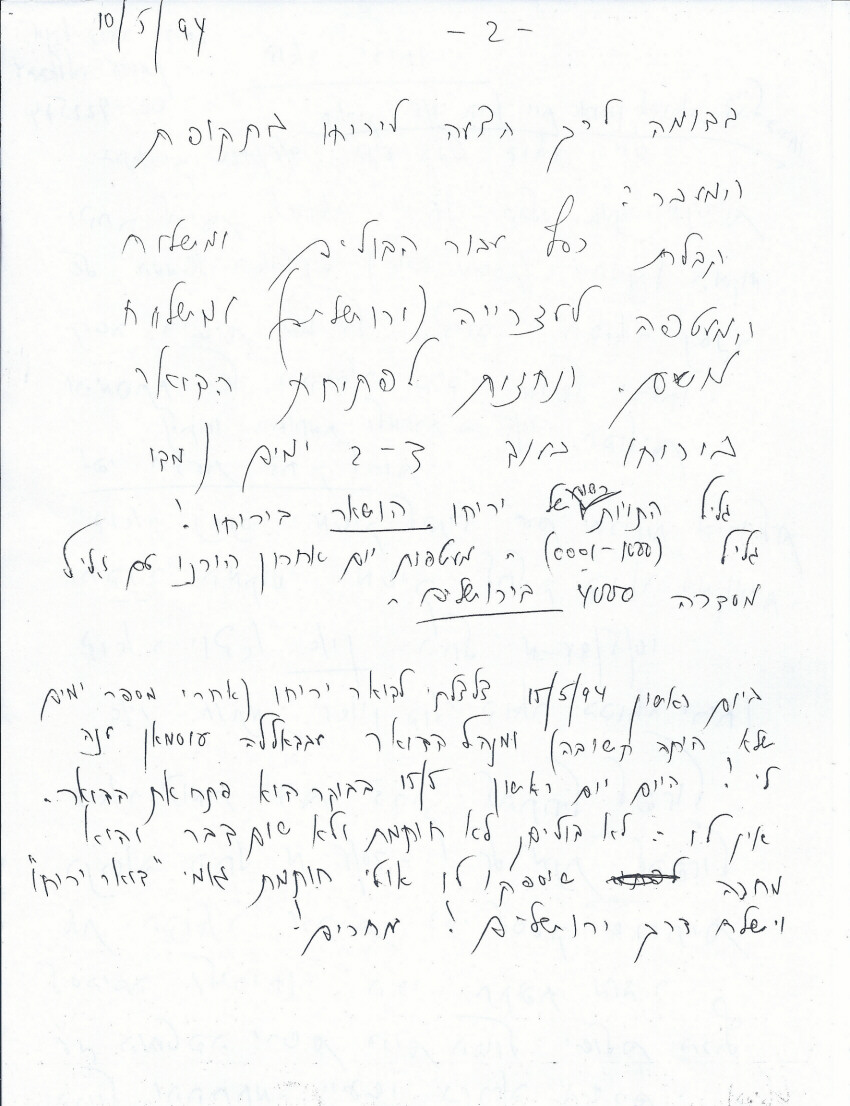 10/5/94 - 2 -
בדומה לרכב הצעה ליריחו בתקופת
המעבר:
קבלת כסף עבור הבולים, ומשלוח
המעטפה לעצרייה (ירושלים) ומשלוח
למשם. ונחזות לפתיחת הדואר
ביריחו בעוד 2-3 ימים (מקו
גליל התוויות רשום של יריחו הושאר ביריחו!
גליל (0001-1000) - מעטפות יום אחרון הורנו עם גליל
מסדרה 4000 בירושלים -
ביום ראשון 15/5/94 צלצלתי לדואר יריחו (אחרי מספר ימים
שלא היתה תשובה) ומנהל הדואר עבדאללה עוסמאן ענה
לי! היום יום ראשון 15/5 בבוקר הוא פתח את הדואר.
אין לו: לא בולים, לא חותמת ולא שום דבר והוא
מחכה שיספקו לו אולי חותמת גומי "דואר יריחו"
וישלח דרך ירושלים! מחרים!